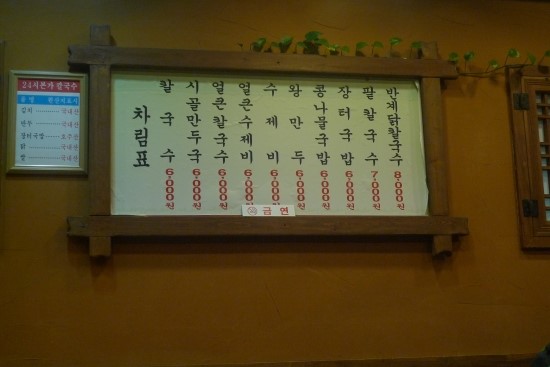 24시본가칼국수
품명 원산지표시
김치 국내산
만두 국내산
장터국밥 호주산
닭 국내산
쌀 국내산
차림표
칼국수 6,000원
시골만두국 6,000원
얼큰칼국수 6,000원
얼큰수제비 6,000원
수제비 6,000원
왕만두 6,000원
콩나물국밥 6,000원
장터국밥 6,000원
팥칼국수 7,000원
반계닭칼국수 8,000원
금연